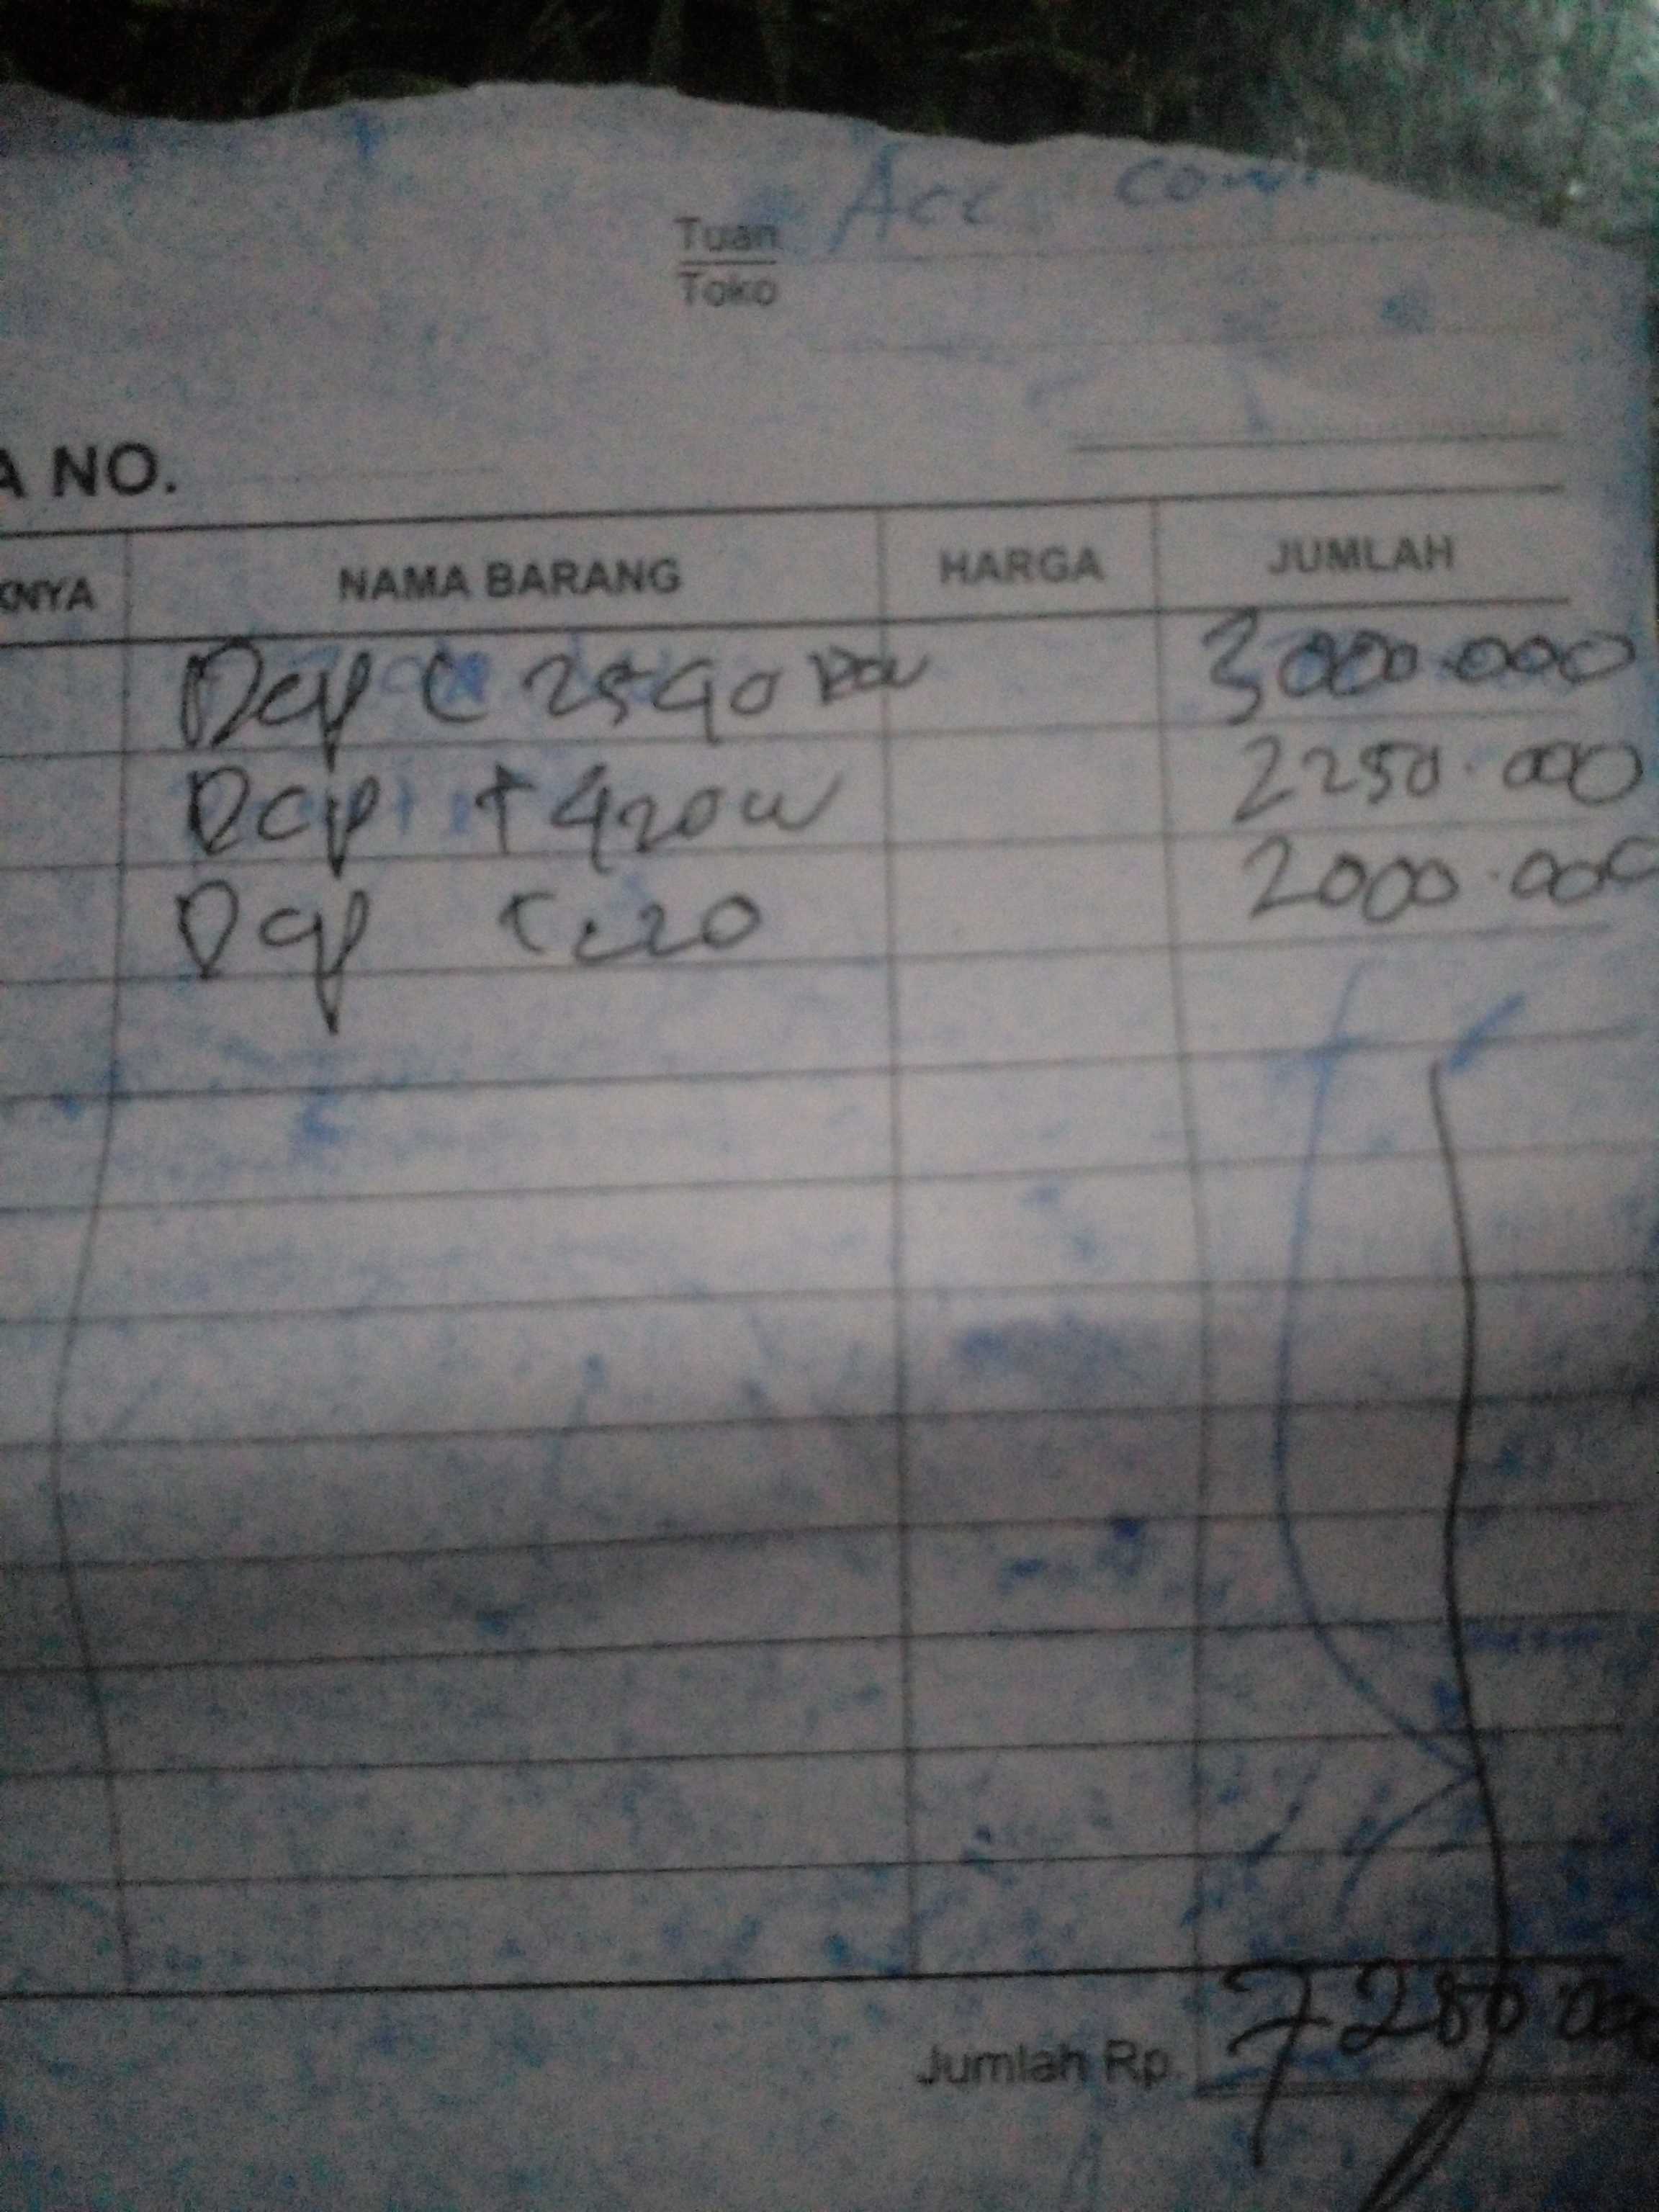 Acc
Tuan
Toko
A NO.
KNYA NAMA BARANG HARGA JUMLAH
Dcp 3000.000
Dcp T420w 2250.000
Dcp T220 2000.000
Jumlah Rp. 7250.000